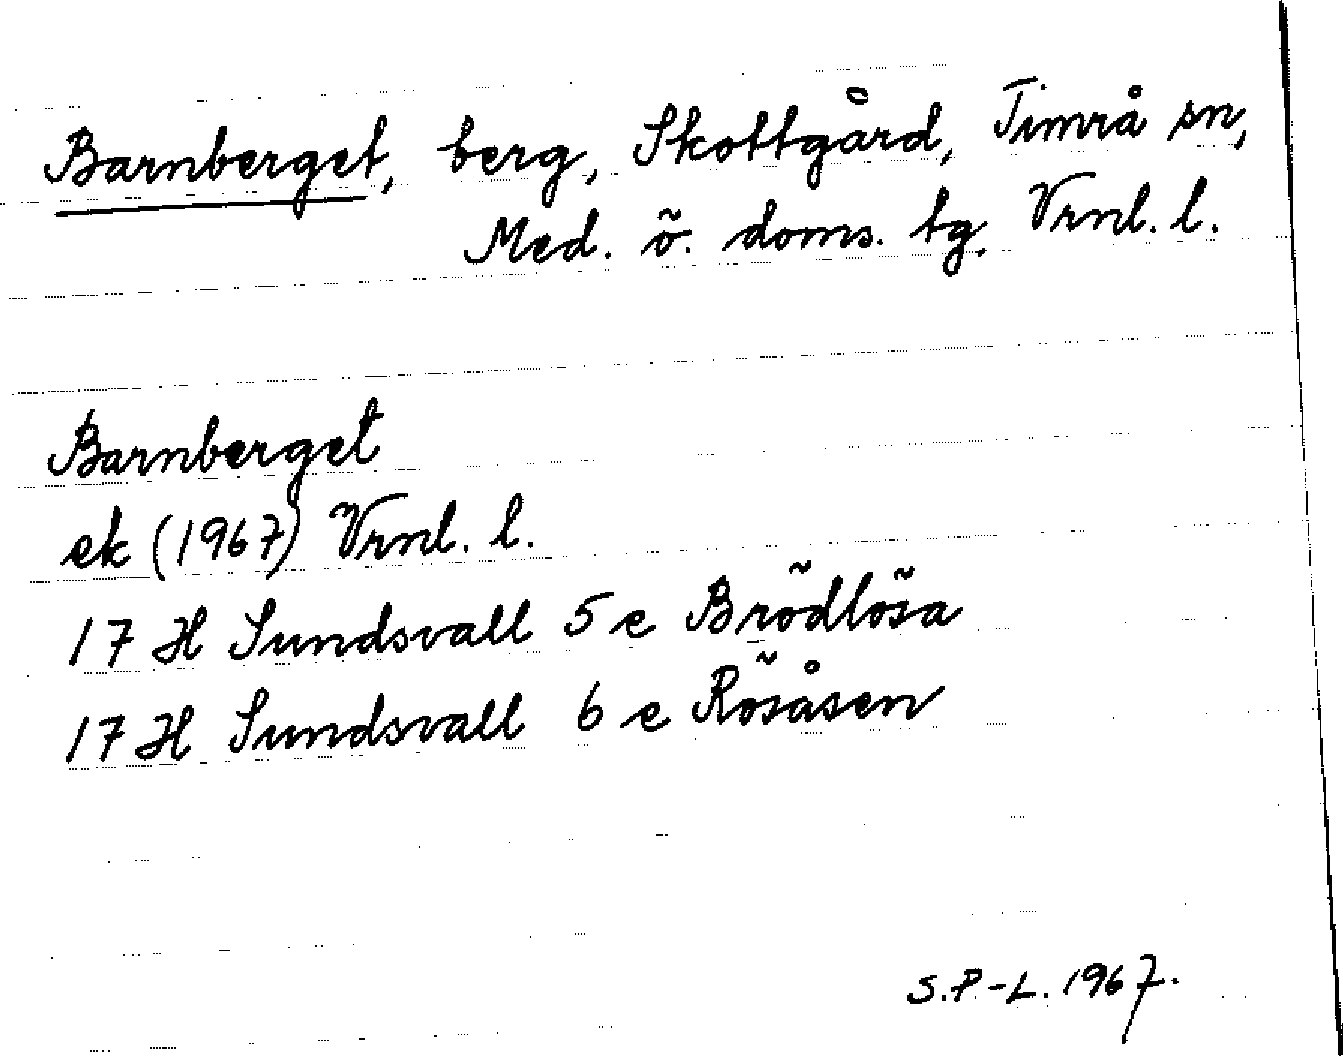 Barnberget, berg, Skottgård, Timrå sn,
Med. ö. doms. tg. Vrnl. l.
Barnberget
ek (1967) Vrnl. l.
17 H Sundsvall 5 e Brödlösa
17 H Sundsvall 6 e Rösåsen
S.P-L. 1967.